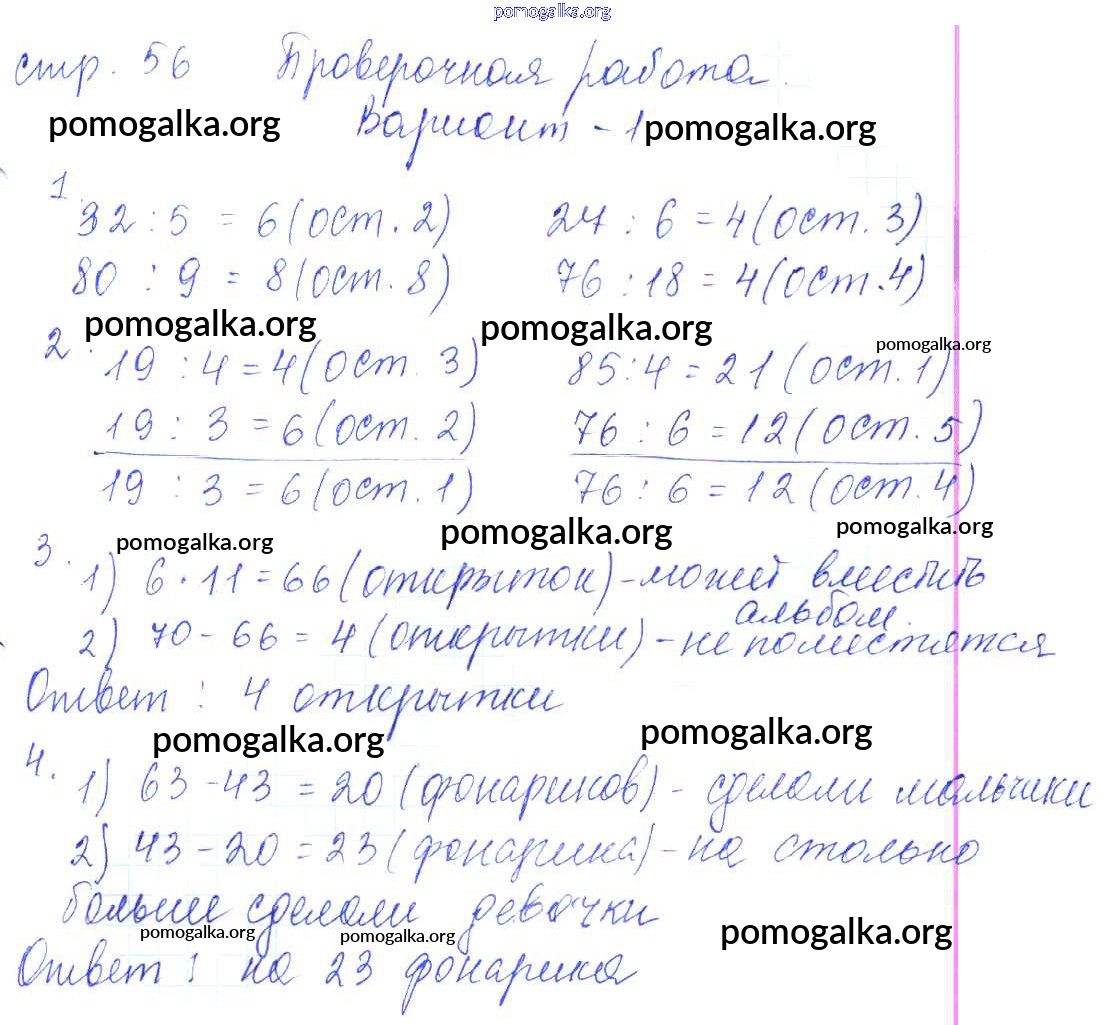 pomogalka.org
стр. 56 Проверочная работа.
pomogalka.org Вариант - 1 pomogalka.org
1.
32 : 5 = 6 (ост. 2) 27 : 6 = 4 (ост. 3)
80 : 9 = 8 (ост. 8) 76 : 18 = 4 (ост. 4)
pomogalka.org pomogalka.org pomogalka.org
2. 19 : 4 = 4 (ост. 3) 85 : 4 = 21 (ост. 1)
19 : 3 = 6 (ост. 2) 76 : 6 = 12 (ост. 5)
19 : 3 = 6 (ост. 1) 76 : 6 = 12 (ост. 4)
pomogalka.org pomogalka.org pomogalka.org
3. 1) 6 · 11 = 66 (открыток) - может вместить
альбом.
2) 70 - 66 = 4 (открытки) - не поместятся
Ответ : 4 открытки
pomogalka.org pomogalka.org
4. 1) 63 - 43 = 20 (фонариков) - сделали мальчики
2) 43 - 20 = 23 (фонарика) - на столько
больше сделали девочки
pomogalka.org pomogalka.org pomogalka.org
Ответ : на 23 фонарика